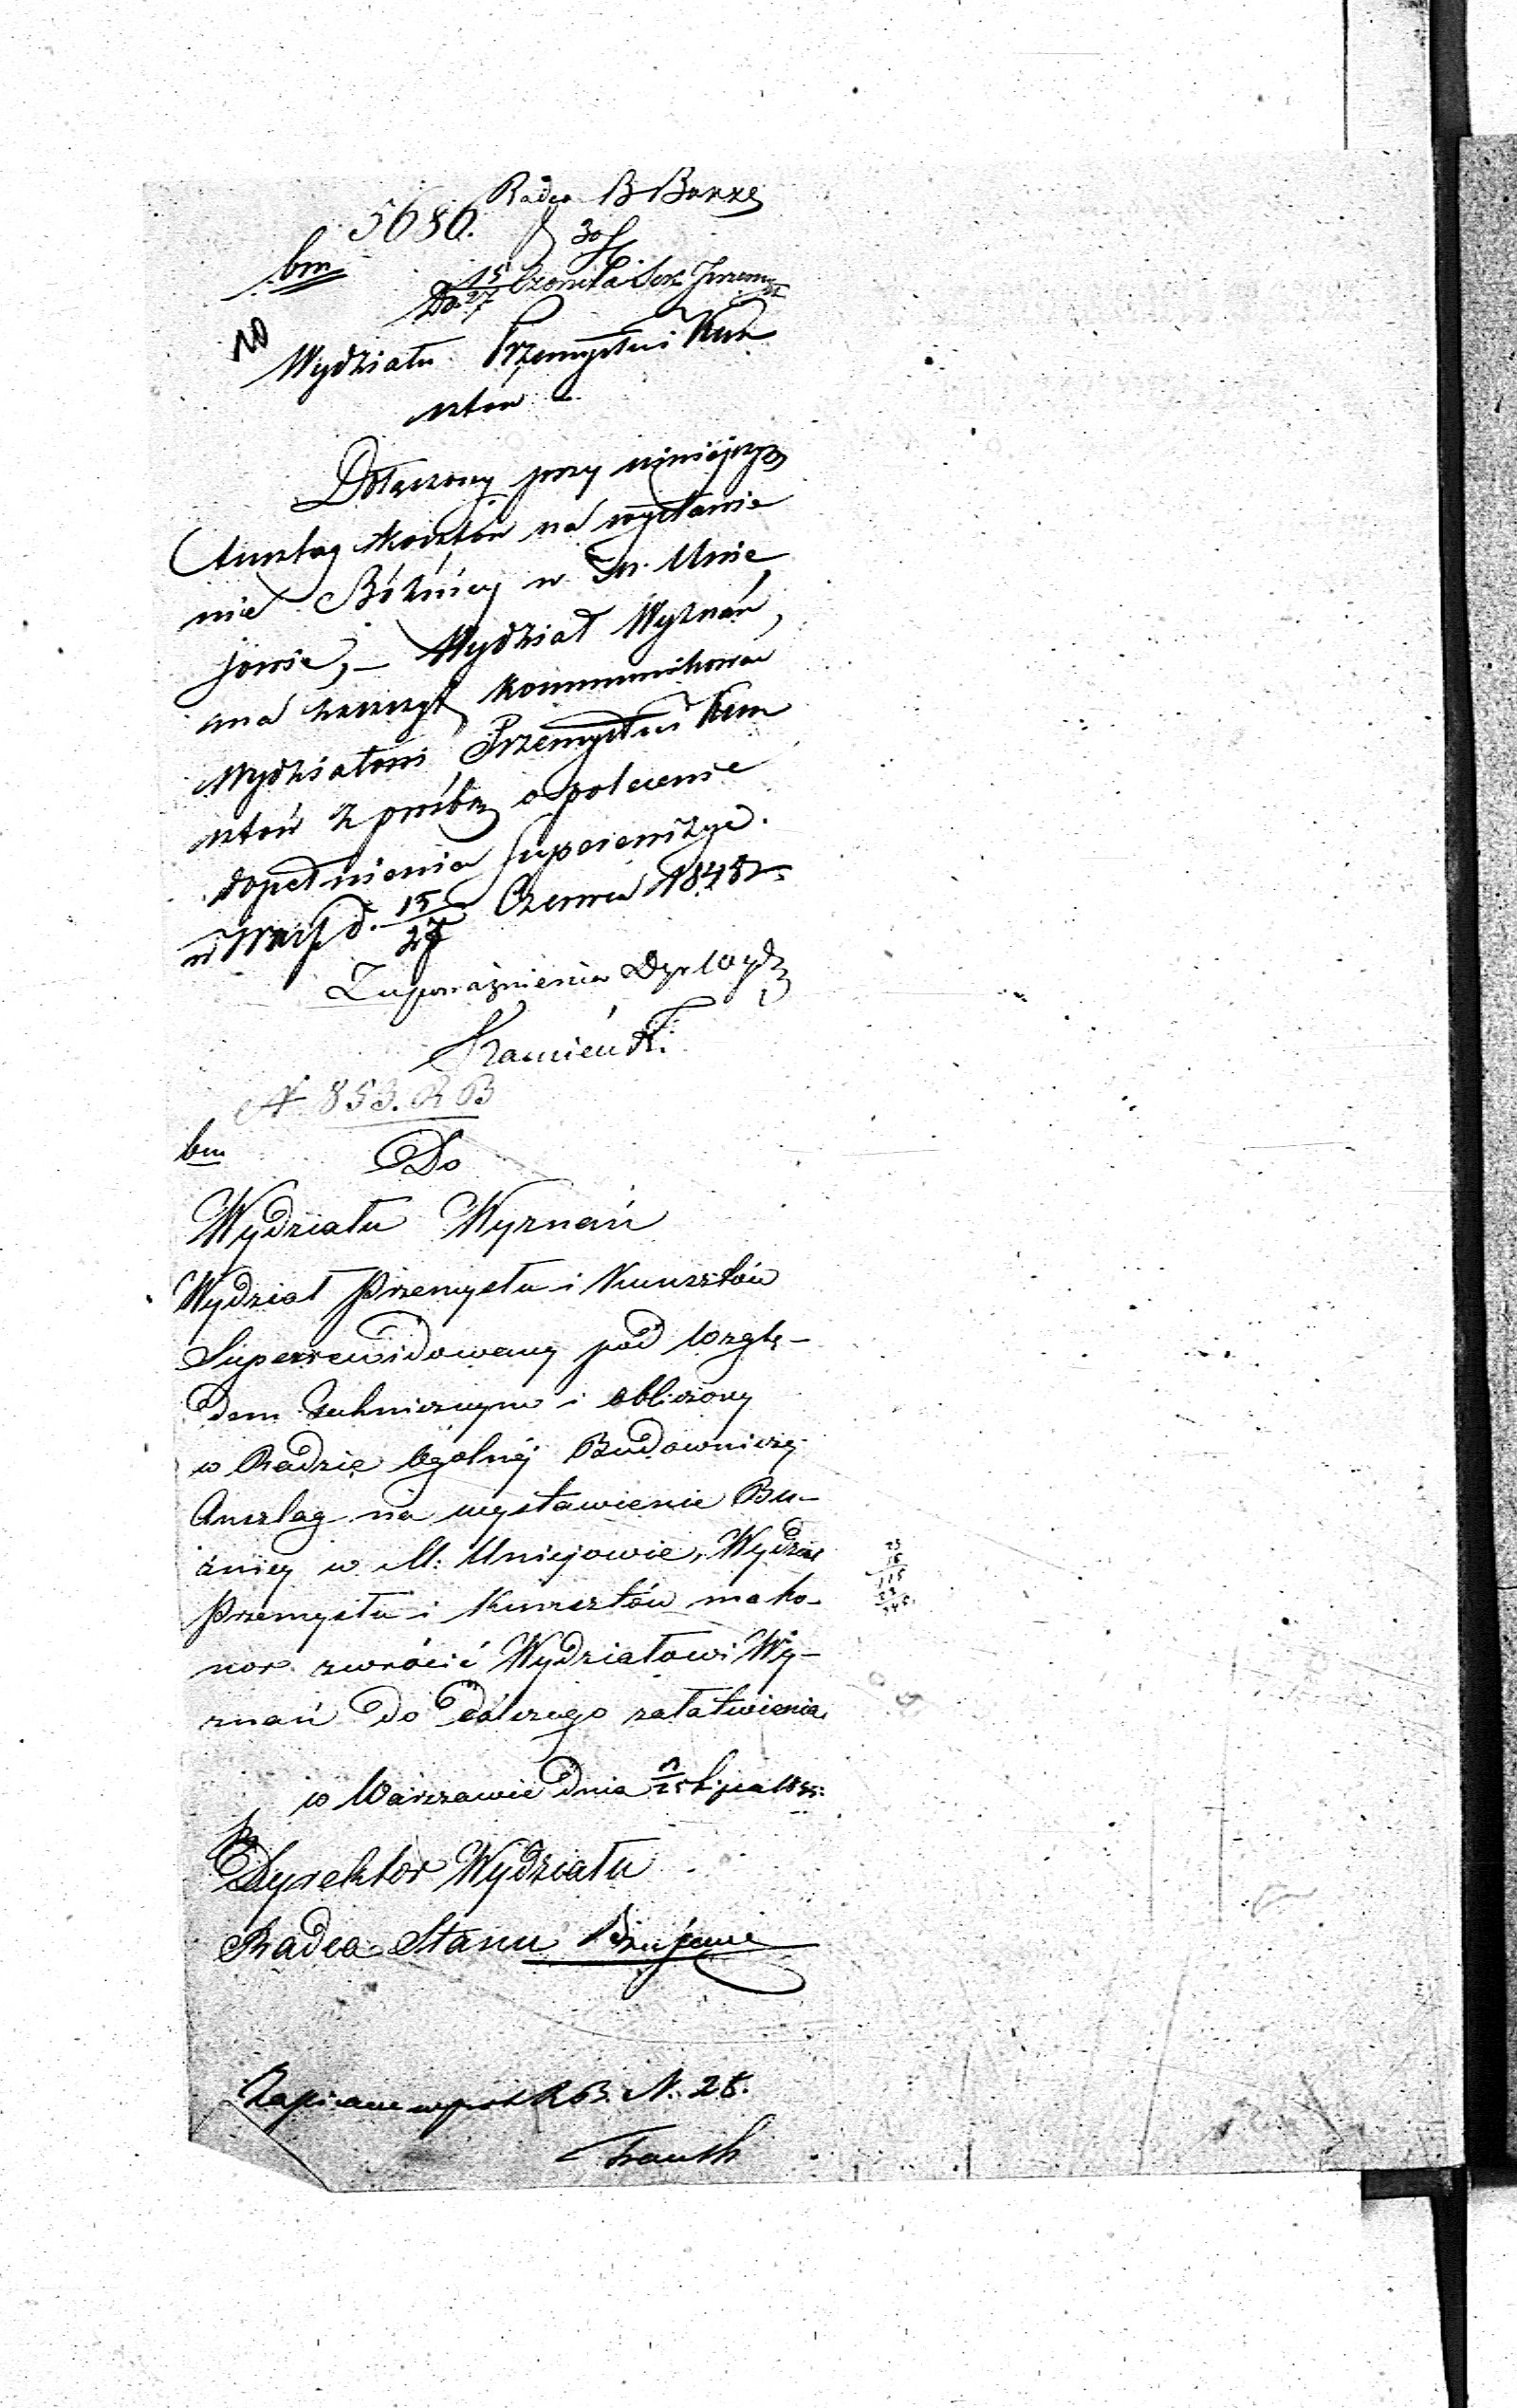 5686. Radca B
30
bm
15
Do 27
10
Wydziału Przemysłu i Kun
sztów
Dołączony przy niniejszym
Anszlag kosztów na wystawie
nie Bóżnicy w M. Unie
jowie, – Wydział Wyznań,
ma zaszczyt kommunikować
Wydziałowi Przemysłu i Kun
sztów z prośbą o polecenie
dopełnienia superrewizyi.
w Warsz d. 15/27 Czerwca 1845 r.
Z upoważnienia Dyr Wydz
N 853. R B
bm
Do
Wydziału Wyznań
Wydział Przemysłu i Kunsztów
Superrewidowany pod wzglę-
dem technicznym i obliczony
w Radzie Ogólnéj Budowniczéj
Anszlag na wystawienie Bu-
żnicy w M. Uniejowie, Wydział
Przemysłu i Kunsztów ma ho-
nor zwrócić Wydziałowi Wy-
znań do dalszego załatwienia.
w Warszawie dnia Lipca
Dyrektor Wydziału
Radca Stanu
Zapisane w prot R B. N. 28.